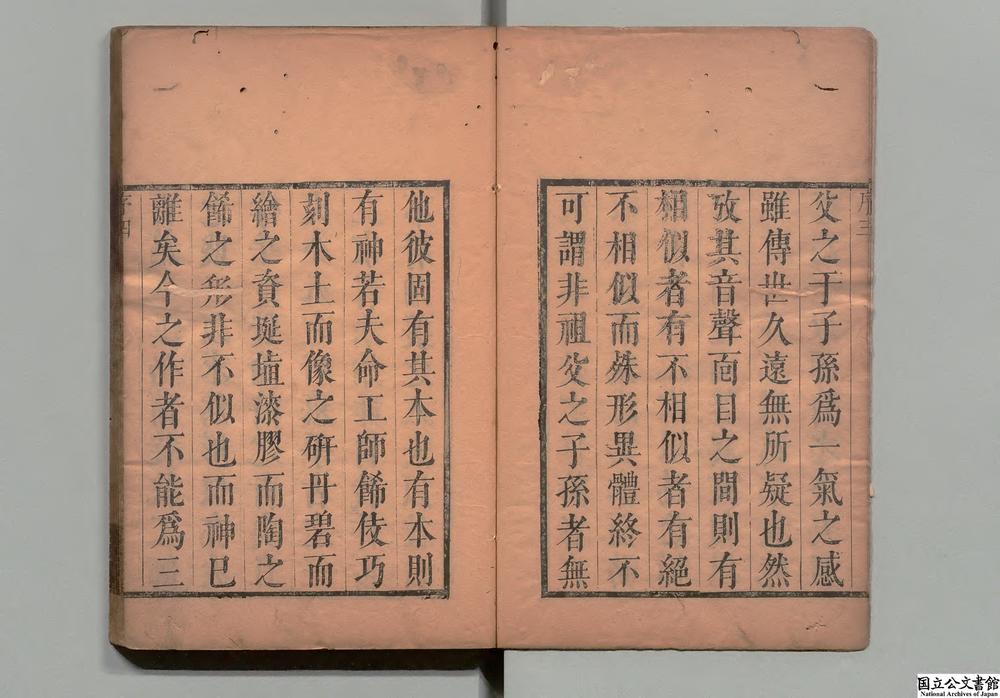 父之于子孫爲一氣之感
雖傳世久遠無所疑也然
攷其音聲面目之間則有
相似者有不相似者有絕
不相似而殊形異體終不
可謂非祖父之子孫者無
他彼固有其本也有本則
有神若夫命工師餙伎巧
刻木土而像之硏丹碧而
繪之資埏埴漆膠而陶之
餙之形非不似也而神已
離矣今之作者不能爲三
序三
序四
国立公文書館
National Archives of Japan